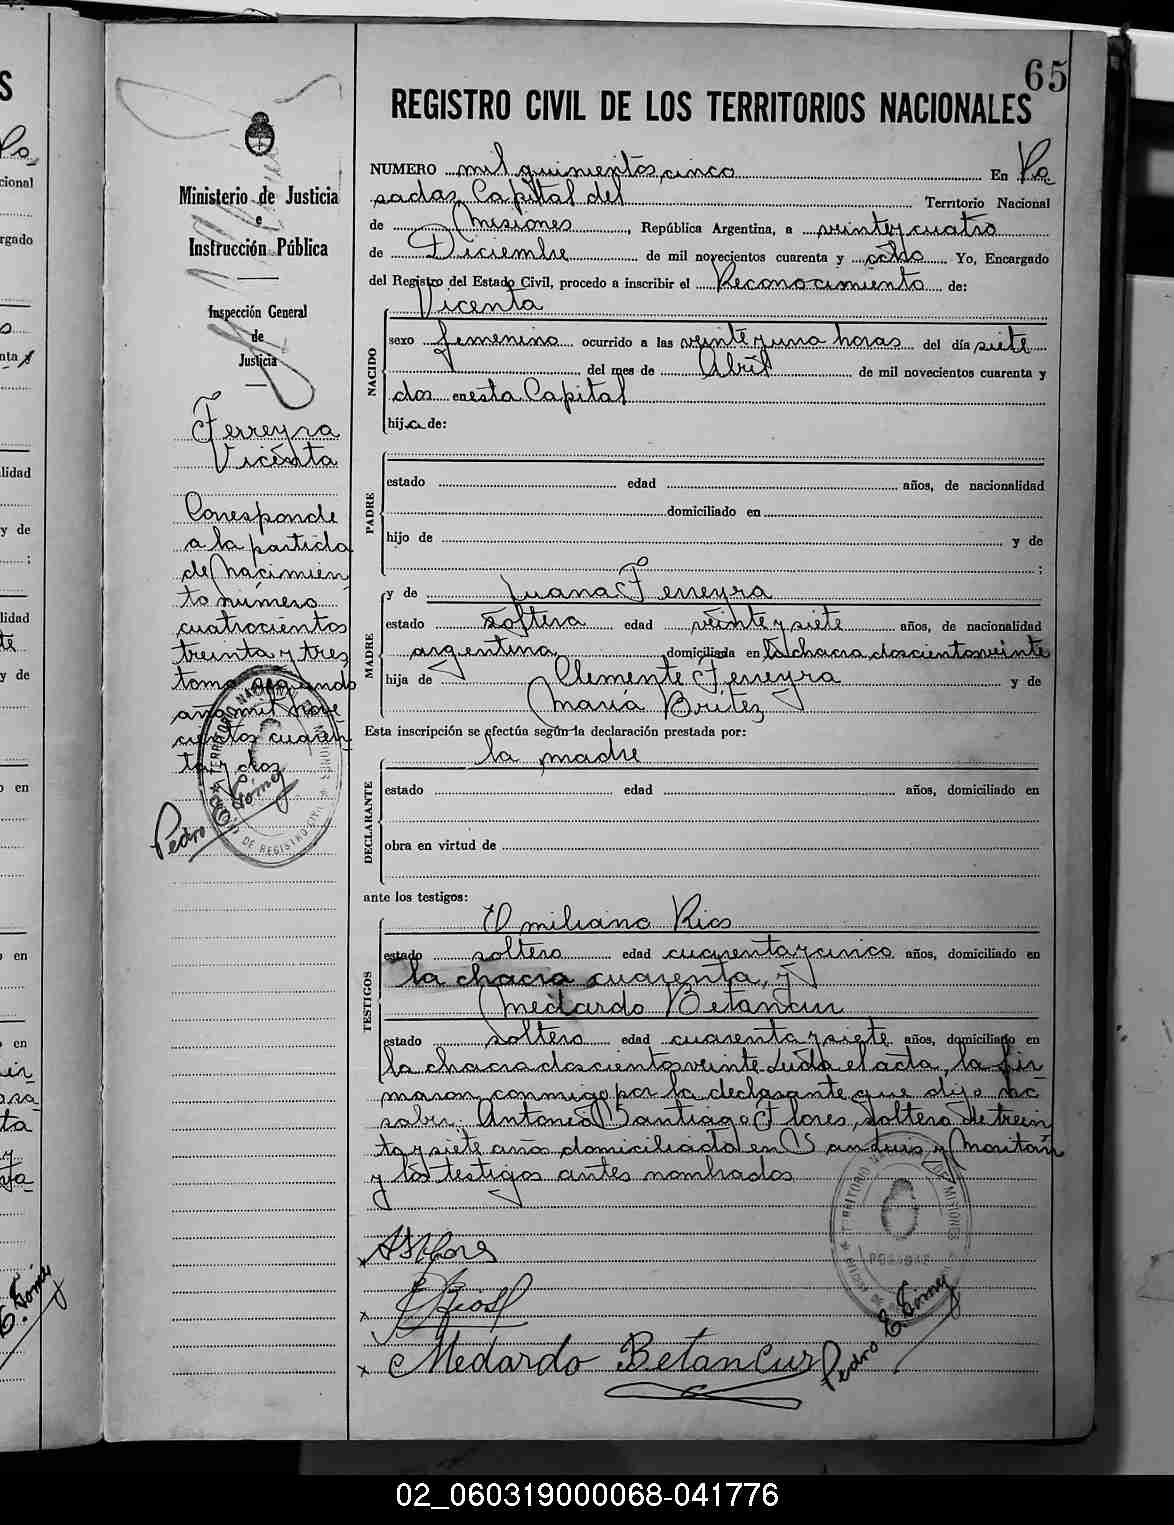 65
REGISTRO CIVIL DE LOS TERRITORIOS NACIONALES
Ministerio de Justicia
e
Instrucción Pública
Inspección General
de
Justicia
Ferreyra
Vicenta
Corresponde
a la partida
de Nacimien
to número
cuatrocientos
treinta y tres
tomo segundo
año mil nove
cientos cuaren
ta y dos
Pedro E. Gómez
NUMERO mil quinientos cinco En Po
sadas Capital del Territorio Nacional
de Misiones, República Argentina, a veinte y cuatro
de Diciembre de mil novecientos cuarenta y ocho Yo, Encargado
del Registro del Estado Civil, procedo a inscribir el Reconocimiento de:
Vicenta
NACIDO
sexo femenino ocurrido a las veinte y una horas del día siete
del mes de Abril de mil novecientos cuarenta y
dos en esta Capital
hija de:
PADRE
estado edad años, de nacionalidad
domiciliado en
hijo de y de
;
y de Juana Ferreyra
MADRE
estado soltera edad veinte y siete años, de nacionalidad
argentina domiciliada en la chacra doscientos veinte
hija de Clemente Ferreyra y de
María Britez
Esta inscripción se efectúa según la declaración prestada por:
la madre
DECLARANTE
estado edad años, domiciliado en
obra en virtud de
ante los testigos:
Emiliano Rios
TESTIGOS
estado soltero edad cuarenta y cinco años, domiciliado en
la chacra cuarenta, y
Medardo Betancur
estado soltero edad cuarenta y siete años, domiciliado en
la chacra doscientos veinte Leída el acta, la fir
maron conmigo por la declarante que dijo no
saber Antonio Santiago Flores, soltero de trein
ta y siete años domiciliado en San Luis y
y los testigos antes nombrados
TERRITORIO NACIONAL DE MISIONES
POSADAS
A S Flores
E Rios
Medardo Betancur
Pedro E. Gómez
02_060319000068-041776